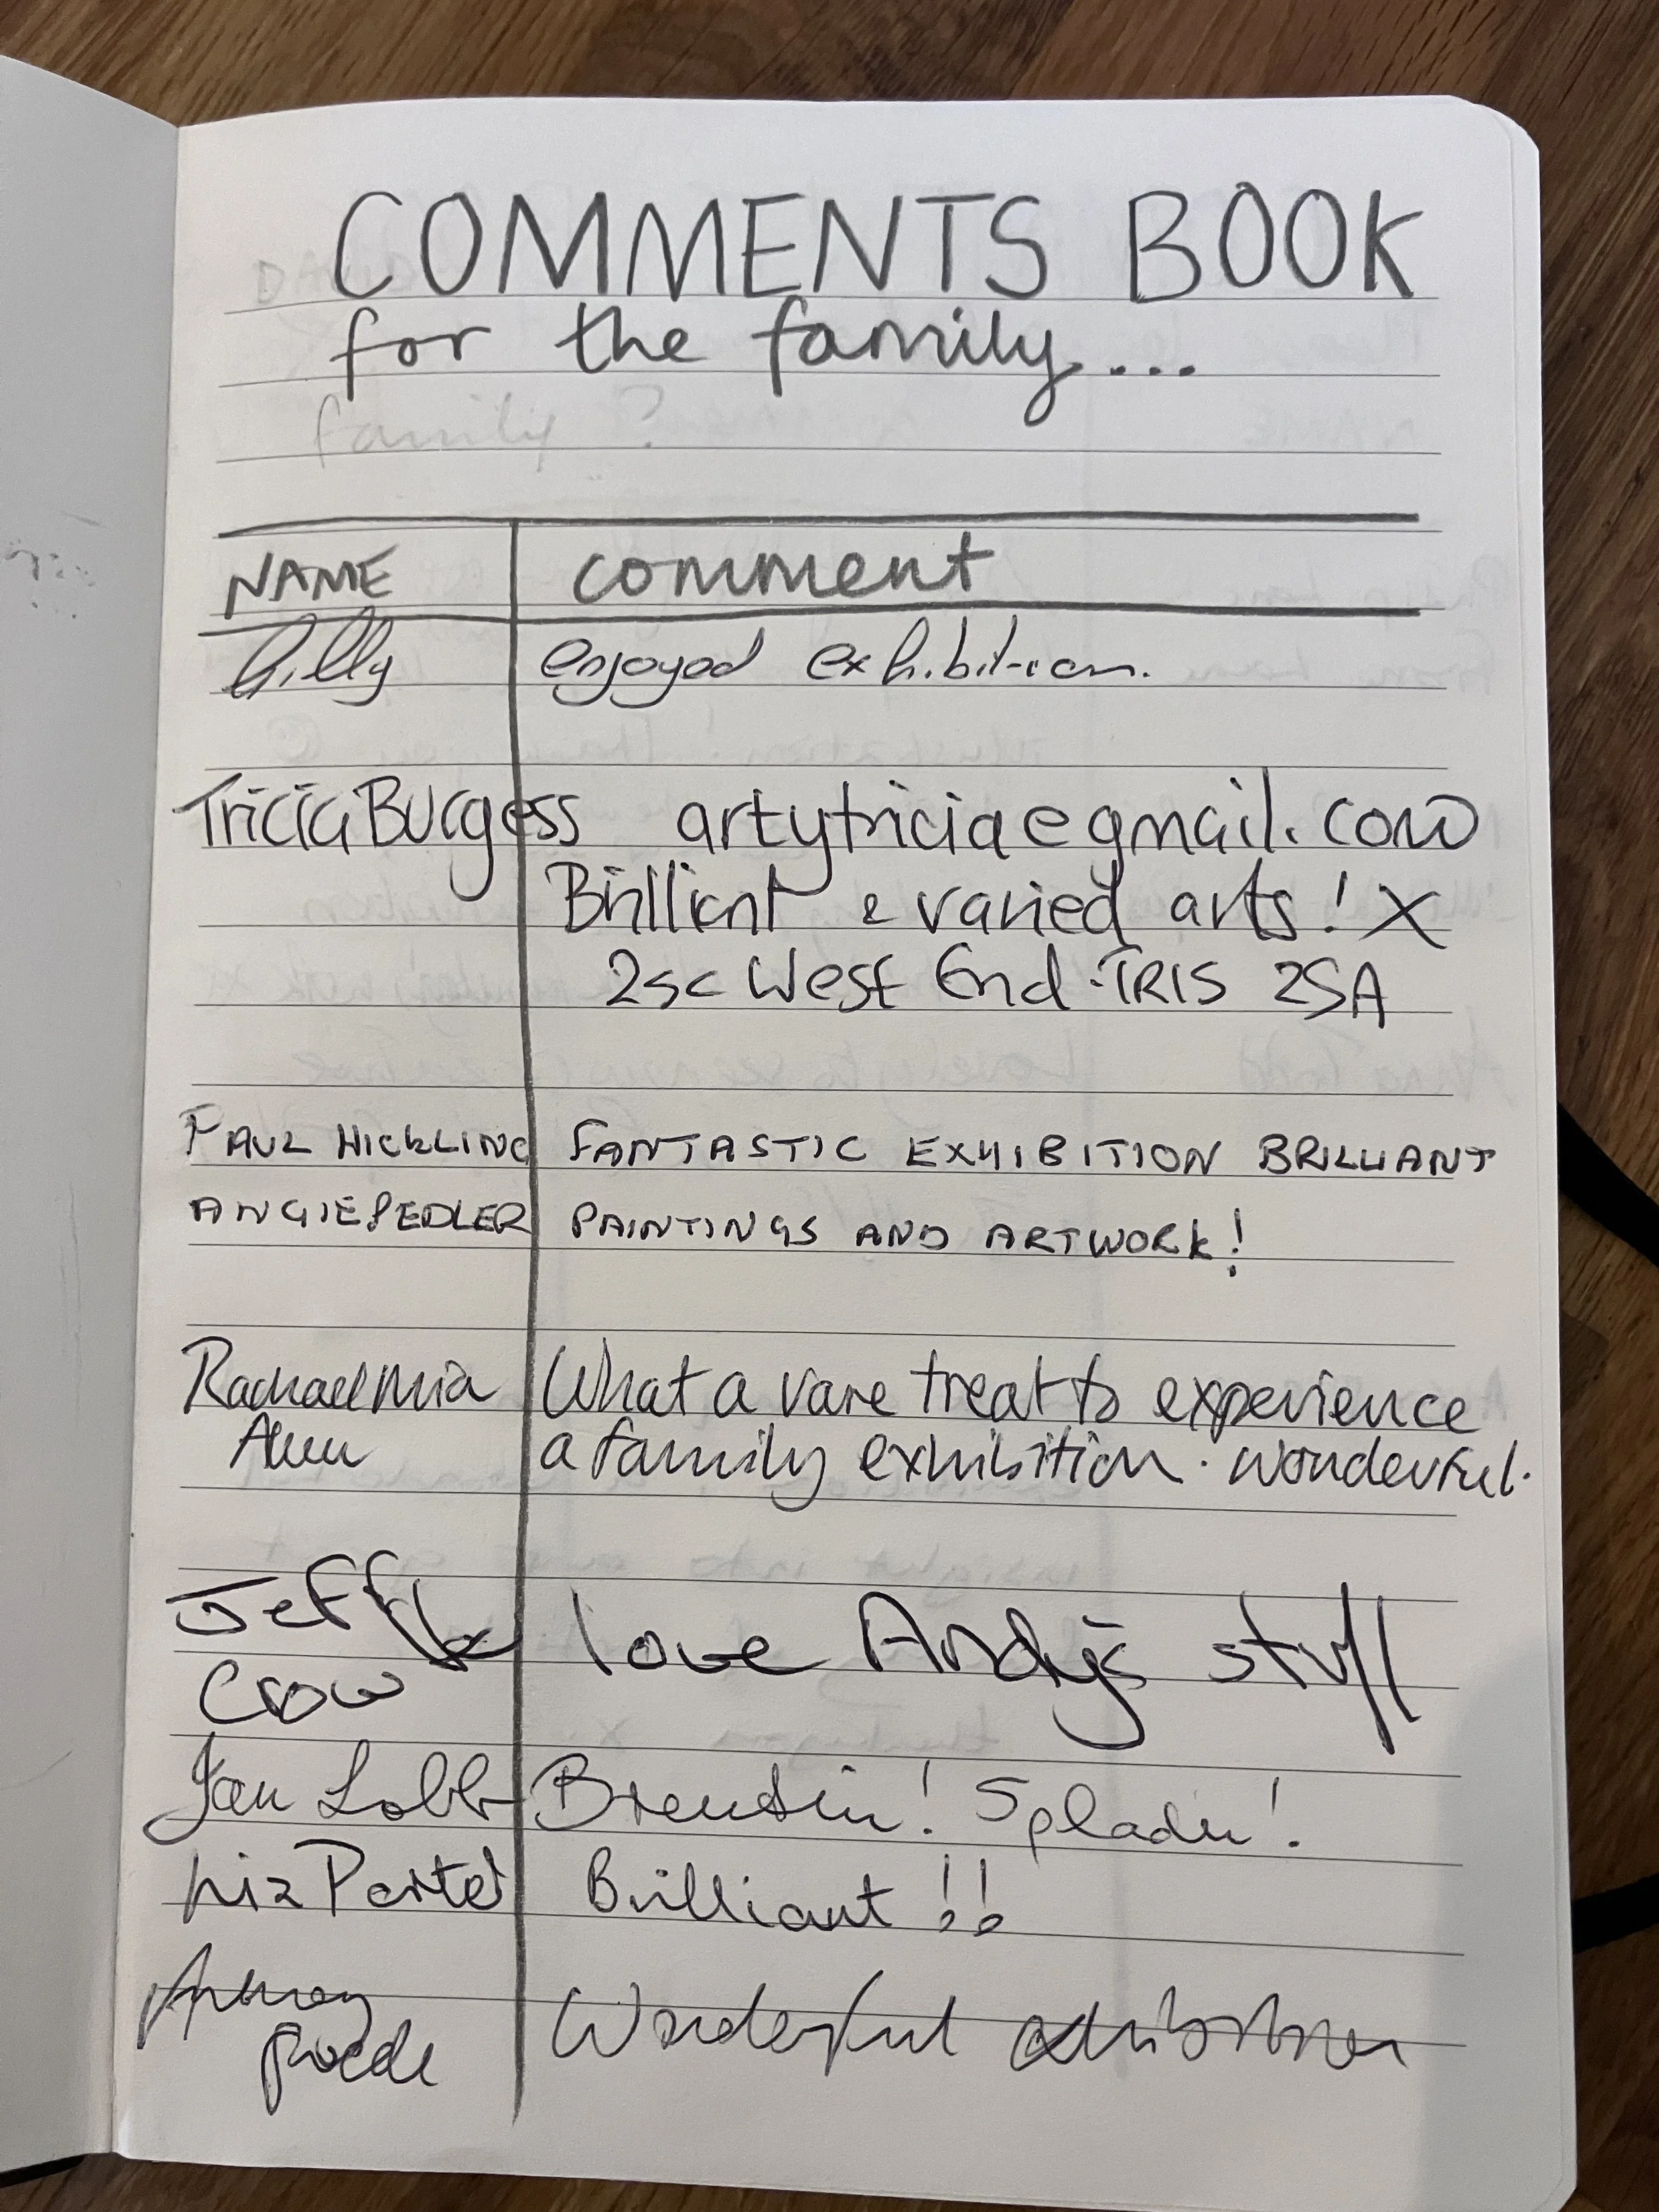 COMMENTS BOOK
for the family...
family?
NAME comment
Gilly enjoyed exhibition.
Tricia Burgess artytricia@gmail.com
Brilliant & varied arts! X
25c West End TR15 2SA
PAUL HICKLING FANTASTIC EXHIBITION BRILLIANT
ANGIE PEDLER PAINTINGS AND ARTWORK!
Rachael Mia What a rare treat to experience
a family exhibition. Wonderful.
Jeff love Andy's stuff
Crow
Jan Lobb ! !
Liz Porter Brilliant!!
Wonderful exhibition